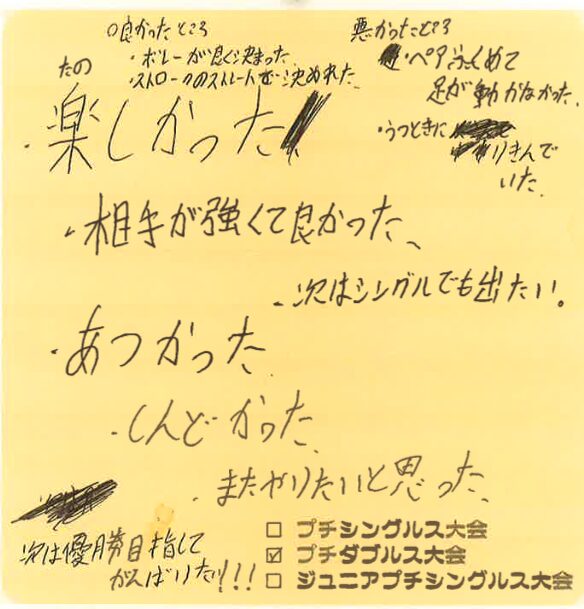 ○良かったところ
・ボレーが良く決まった
・ストロークのストレートも決めれた
悪かったところ
・ペアふくめて
足が動かなかった
・うつときに
りきんで
いた
たの
・楽しかった
・相手が強くて良かった
・次はシングルでも出たい。
・あつかった
・しんどかった
・またやりたいと思った
次は優勝目指して
がんばりたい!!!
□ プチシングルス大会
☑ プチダブルス大会
□ ジュニアプチシングルス大会